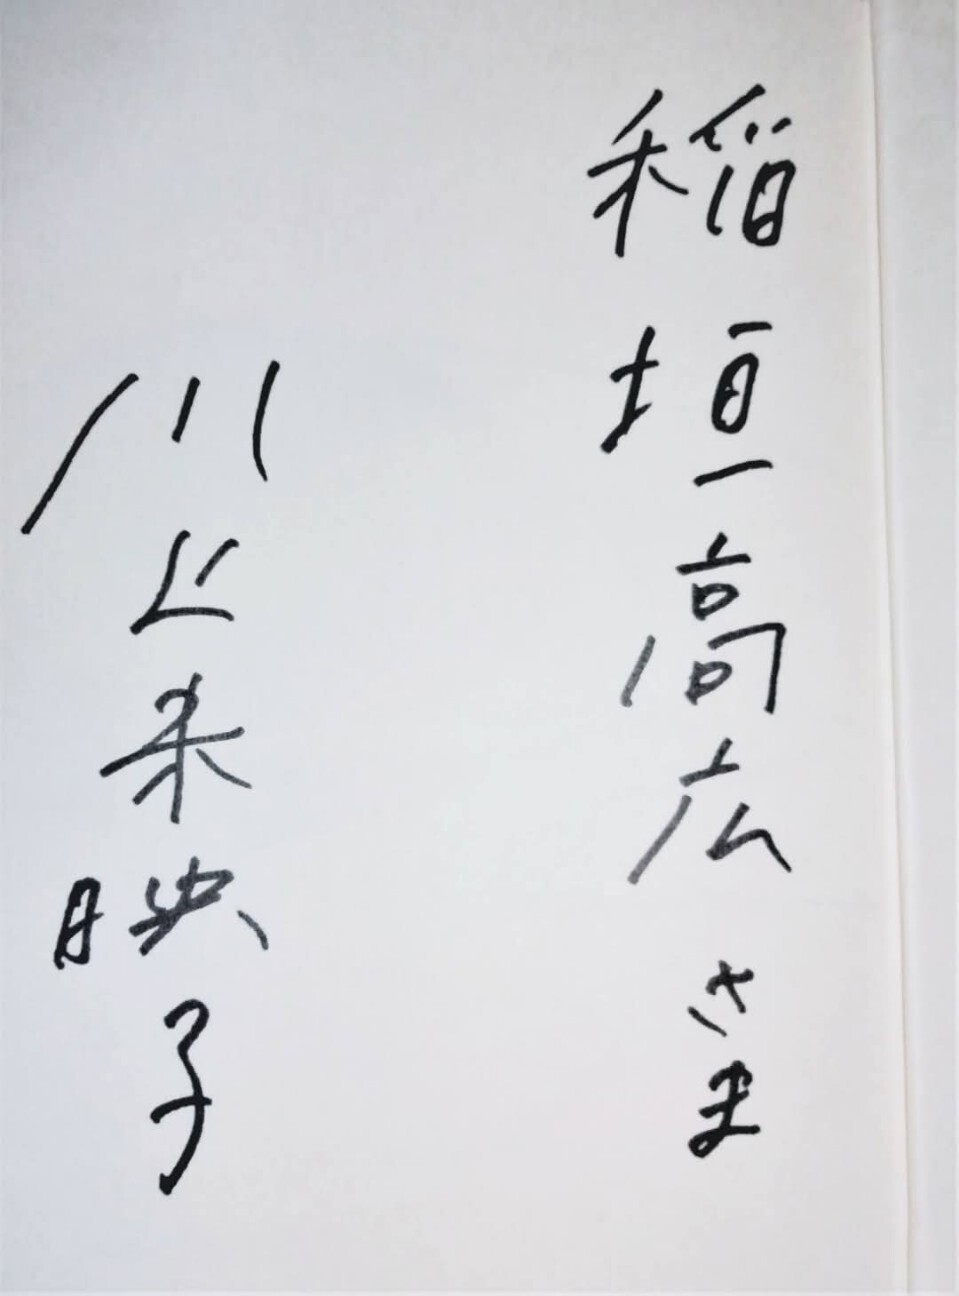 稲垣高広さま
川上未映子